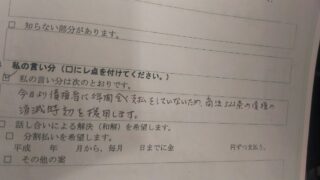 □ 知らない部分があります。
私の言い分（□にレ点を付けてください。）
私の言い分は次のとおりです。
今日より債権者に 年間全く支払をしていないため、商法522条の債権の
消滅時効を援用します。
□ 話し合いによる解決（和解）を希望します。
□ 分割払いを希望します。
平成 年 月から、毎月 日までに金 円ずつ支払う。
□ その他の案